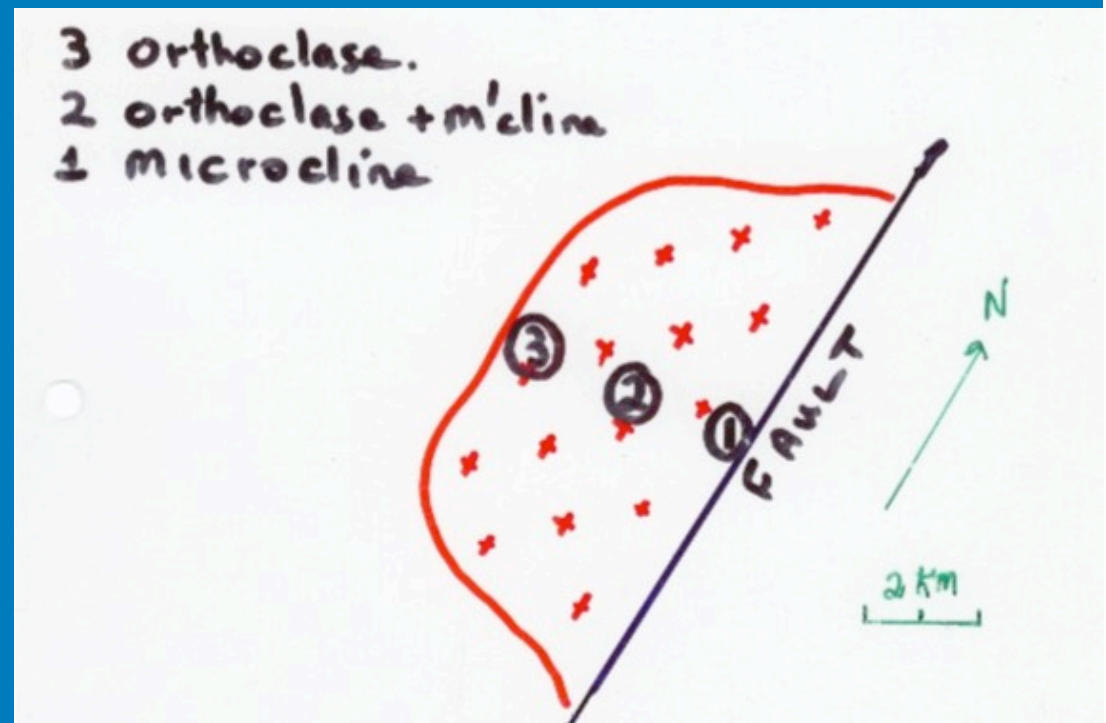 3 orthoclase.
2 orthoclase + m'cline
1 microcline
N
3
2
1
FAULT
2 Km